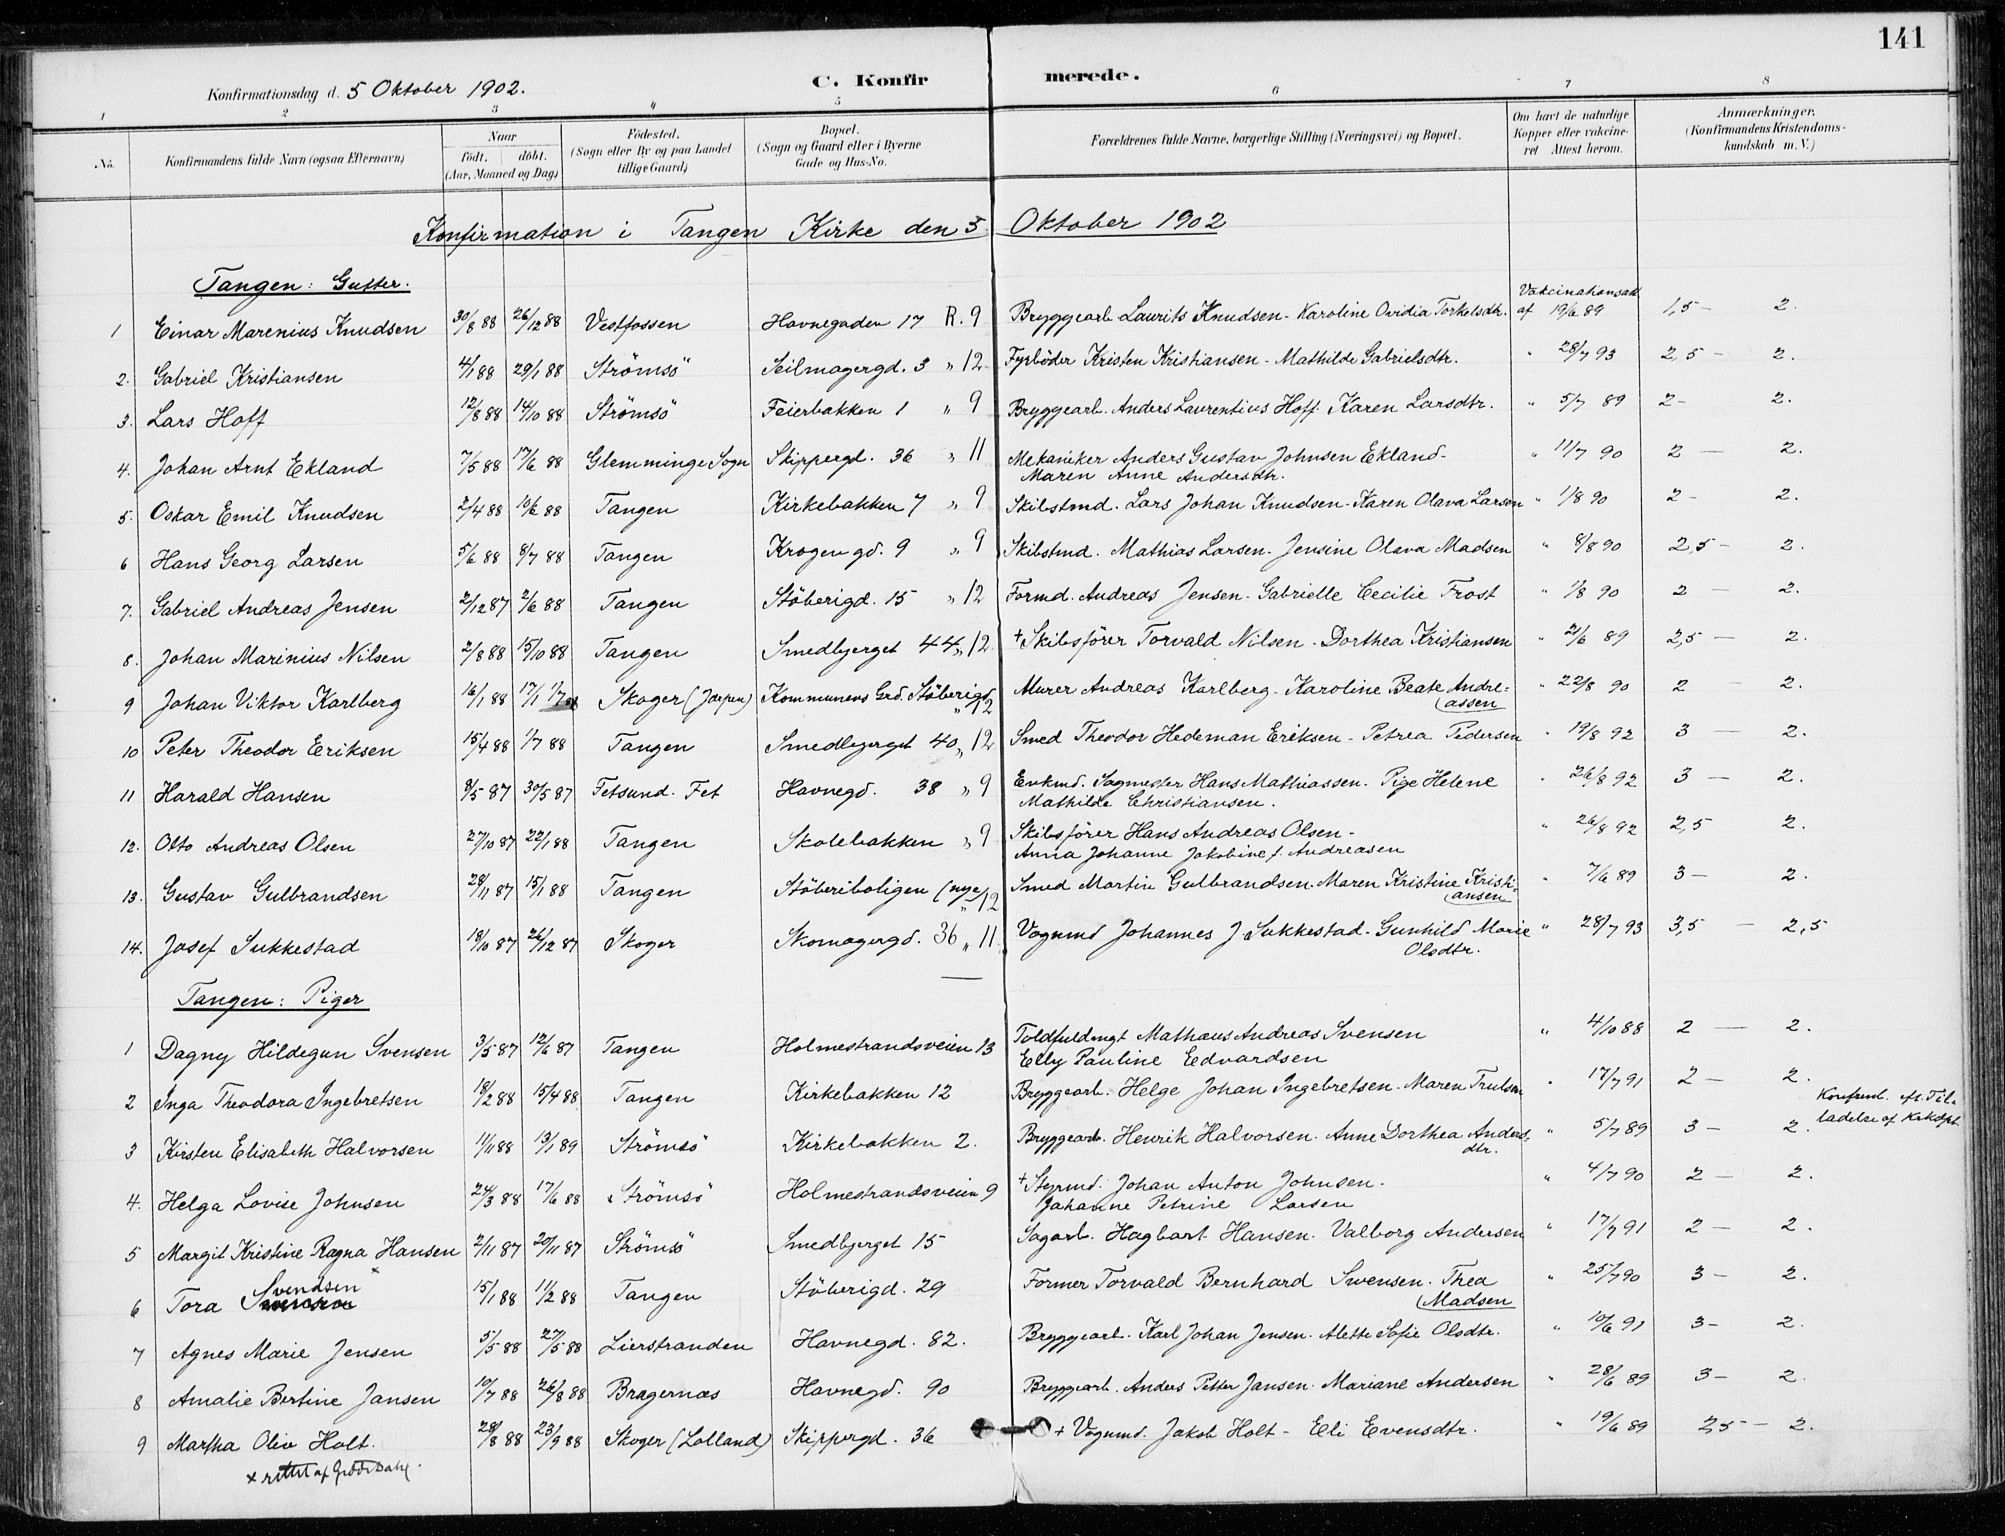 141
Konfirmationsdag d. 5 Oktober 1902.
C. Konfirmerede.
1 2 3 4 5 6 7 8
No. Konfirmandens fulde Navn (ogsaa Efternavn) Naar födt. döbt. (Aar, Maaned og Dag) Födested. (Sogn eller By og paa Landet tillige Gaard) Bopæl. (Sogn og Gaard eller i Byerne Gade og Hus-No. Forældrenes fulde Navne, borgerlige Stilling (Næringsvei) og Bopæl. Om havt de naturlige Kopper eller vakcineret Attest herom. Anmærkninger. (Konfirmandens Kristendomskundskab m. V.)
Konfirmation i Tangen Kirke den 5 Oktober 1902
Tangen: Gutter.
1 Einar Marenius Knudsen 30/8 88 26/12 88 Vestfossen Havnegaden 17 R. 9 Bryggearb Laurits Knudsen - Karoline Ovidia Torkelsdtr. Vakcinationsatt af 19/6 89 1,5 - 2.
2. Gabriel Kristiansen 4/1 88 29/1 88 Strömsö Seilmagergd. 3 " 12 Fyrböder Kristen Kristiansen - Mathilde Gabrielsdtr. " 28/7 93 2,5 - 2.
3. Lars Hoff 12/8 88 14/10 88 Strömsö Feierbakken 1 " 9 Bryggearb. Anders Laurentius Hoff. Karen Larsdtr. " 5/7 89 2 - 2.
4. Johan Arnt Ekland 7/5 88 17/6 88 Glemminge Sogn Skippergd. 36 " 11 Mekaniker Anders Gustav Johnsen Ekland - " 11/7 90 2 - 2.
Maren Anne Andersdtr.
5. Oskar Emil Knudsen 2/4 88 10/6 88 Tangen Kirkebakken 7 " 9 Skibstmd. Lars Johan Knudsen - Karen Olava Larsen " 1/8 90 2 - 2.
6 Hans Georg Larsen 5/6 88 8/7 88 Tangen Krogen gd. 9 " 9 Skibstmd. Mathias Larsen. Jensine Olava Madsen " 8/8 90 2,5 - 2.
7. Gabriel Andreas Jensen 2/12 87 2/6 88 Tangen Stöberigd. 15 " 12 Formd. Andreas Jensen - Gabrielle Cecilie Frost " 1/8 90 2 - 2.
8. Johan Marinius Nilsen 2/8 88 15/10 88 Tangen Smedbjerget 44 " 12 + Skibsförer Torvald Nilsen - Dorthea Kristiansen " 21/6 89 2,5 - 2.
9 Johan Viktor Karlberg 16/1 88 17/1 Skoger (Jarpen) Kommunens Grd. Stöberigd. " 12 Murer Andreas Karlberg - Karoline Beate Andre= " 22/8 90 2 - 2.
assen
10 Peter Theodor Eriksen 15/4 88 1/7 88 Tangen Smedbjerget 40 " 12 Smed Theodor Hedeman Eriksen - Petrea Pedersen " 19/8 92 3 - 2.
11 Harald Hansen 9/5 87 30/5 87 Fetsund. Fet Havnegd. 38 " 9 Enkmd. Sagmester Hans Mathiassen. Pige Helene " 26/8 92 3 - 2.
Mathilde Christiansen.
12. Otto Andreas Olsen 27/10 87 22/1 88 Tangen Skolebakken " 9 Skibsförer Hans Andreas Olsen - " 26/8 92 2,5 2.
Anna Johanne Jakobine f. Andreasen
13. Gustav Gulbrandsen 28/11 87 15/1 88 Tangen Stöberiboligen (nye) " 12 Smed Martin Gulbrandsen. Maren Kristine Kristi= " 7/6 89 3 - 2.
ansen
14. Josef Sukkestad 18/10 87 26/12 87 Skoger Skomagergd. 36 " 11. Vognmd Johannes J Sukkestad - Gunhild Marie " 28/7 93 3,5 - 2,5
Olsdtr.
Tangen: Piger
1 Dagny Hildegun Svensen 3/5 87 12/6 87 Tangen Holmestrandsveien 13 Toldfuldmgt Mathæus Andreas Svensen " 4/10 88 2 - 2.
Elly Pauline Edvardsen
2 Inga Theodora Ingebretsen 18/2 88 15/4 88 Tangen Kirkebakken 12 Bryggearb. Helge Johan Ingebretsen. Maren Trulsen " 17/7 91 2 - 2.
3 Kirsten Elisabeth Halvorsen 11/11 88 13/1 89 Strömsö Kirkebakken 2. Bryggearb. Henrik Halvorsen. Anne Dorthea Anders= " 5/7 89 3 - 2. Konfirmd. eft. Til-
dtr. ladelse af Kirkdpt.
4. Helga Lovise Johnsen 24/3 88 17/6 88 Strömsö Holmestrandsveien 9 + Styrmd. Johan Anton Johnsen. " 4/7 90 2 - 2.
Johanne Petrine Larsen
5 Margit Kristine Ragna Hansen 2/11 87 20/11 87 Strömsö Smedbjerget 15 Sagarb. Hagbart Hansen. Valborg Andersen " 17/7 91 2 - 2.
6 Tora Svendsen x 15/1 88 11/2 88 Tangen Stöberigd. 29 Former Torvald Bernhard Swensen. Thea " 25/7 90 3 - 2.
Madsen
7 Agnes Marie Jensen 5/5 88 27/5 88 Lierstranden Havnegd. 82. Bryggearb. Karl Johan Jensen. Alette Sofie Olsdtr. " 10/6 91 3 - 2.
8 Amalie Bertine Jansen 10/7 88 26/8 88 Bragernæs Havnegd. 90 Bryggearb. Anders Petter Jansen. Mariane Andersen " 28/6 89 3 - 2.
9 Martha Oliv Holt. 28/8 88 23/9 88 Skoger (Lolland) Skippergd. 36 + Vognmd. Jakob Holt - Eli Evensdtr. " 19/6 89 2,5 - 2.
x rettet af